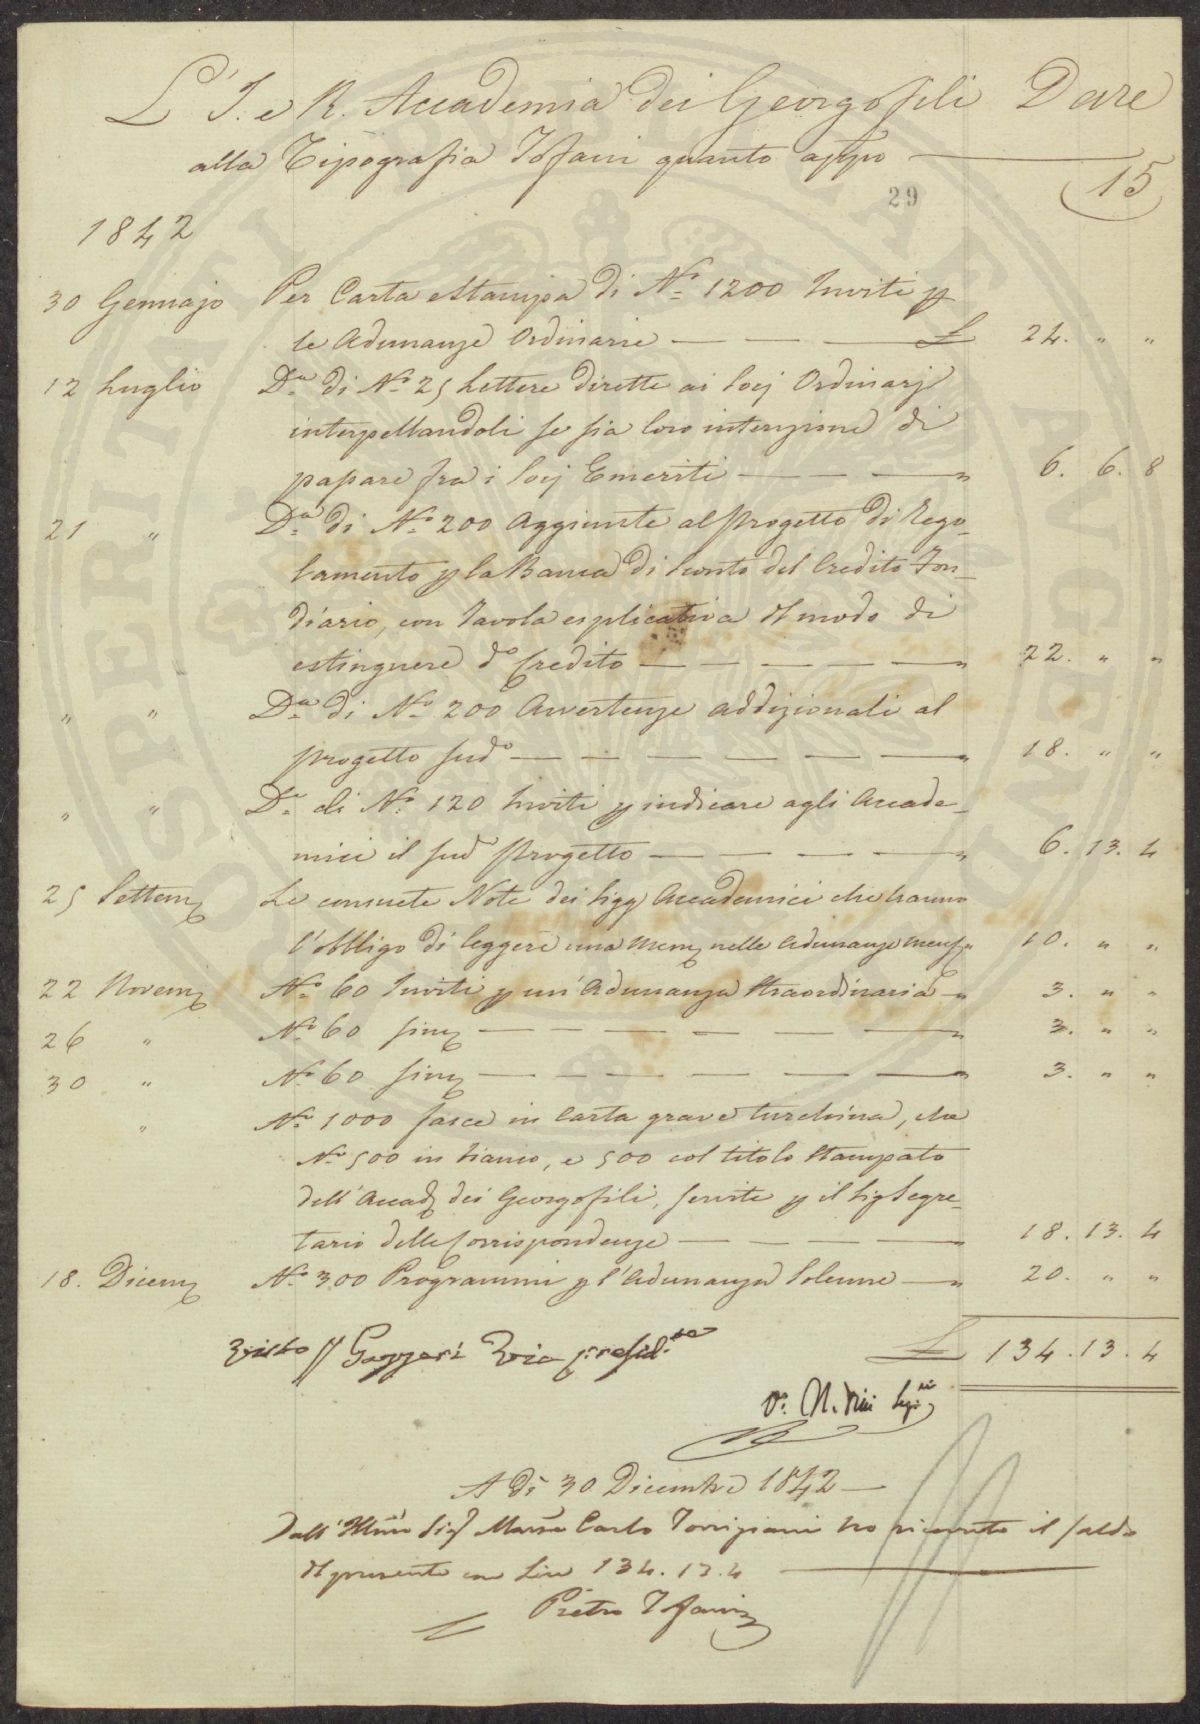 L'I. e R. Accademia dei Georgofili Dare
alla Tipografia Tofani quanto app.o
15
29
1842
30 Gennajo Per Carta e Stampa di N.o 1200 Inviti p
le Adunanze Ordinarie £ 24. " "
12 Luglio D.a di N.o 25 Lettere dirette ai Socj Ordinarj
interpellandoli se sia loro intenzione di
passare fra i Socj Emeriti " 6. 6. 8
21 " D.a di N.o 200 Aggiunte al progetto di Rego-
lamento p la Banca di Sconto del Credito Fon-
diario, con Tavola esplicativa il modo di
estinguere d.o Credito " 22. " "
" " D.a di N.o 200 Avvertenze addizionali al
progetto sud.o " 18. " "
" " D.a di N.o 120 Inviti p indicare agli Accade-
mici il sud.o progetto " 6. 13. 4
25 Settem Le consuete Note dei Sigg Accademici che hanno
l'obbligo di leggere una Mem nelle Adunanze mens " 10. " "
22 Novem N.o 60 Inviti p un'Adunanza Straordinaria " 3. " "
26 " N.o 60 sim " 3. " "
30 " N.o 60 sim " 3. " "
" N.o 1000 fasce in Carta grave turchina, che
N.o 500 in bianco, e 500 col titolo Stampato
dell'Accad dei Georgofili, servite p il Sig Segre-
tario delle Corrispondenze " 18. 13. 4
18. Dicem N.o 300 Programmi p l'Adunanza Solenne " 20. " "
Visto Gazzeri Vice presid.te £ 134. 13. 4
V. Seg.rio
A dì 30 Dicembre 1842
Dall'Ill.mo Sig Marse Carlo Torrigiani ho ricevuto il saldo
del presente in Lire 134. 13. 4
Pietro Tofani
PROSPERITATI PUBLICAE AUGENDAE